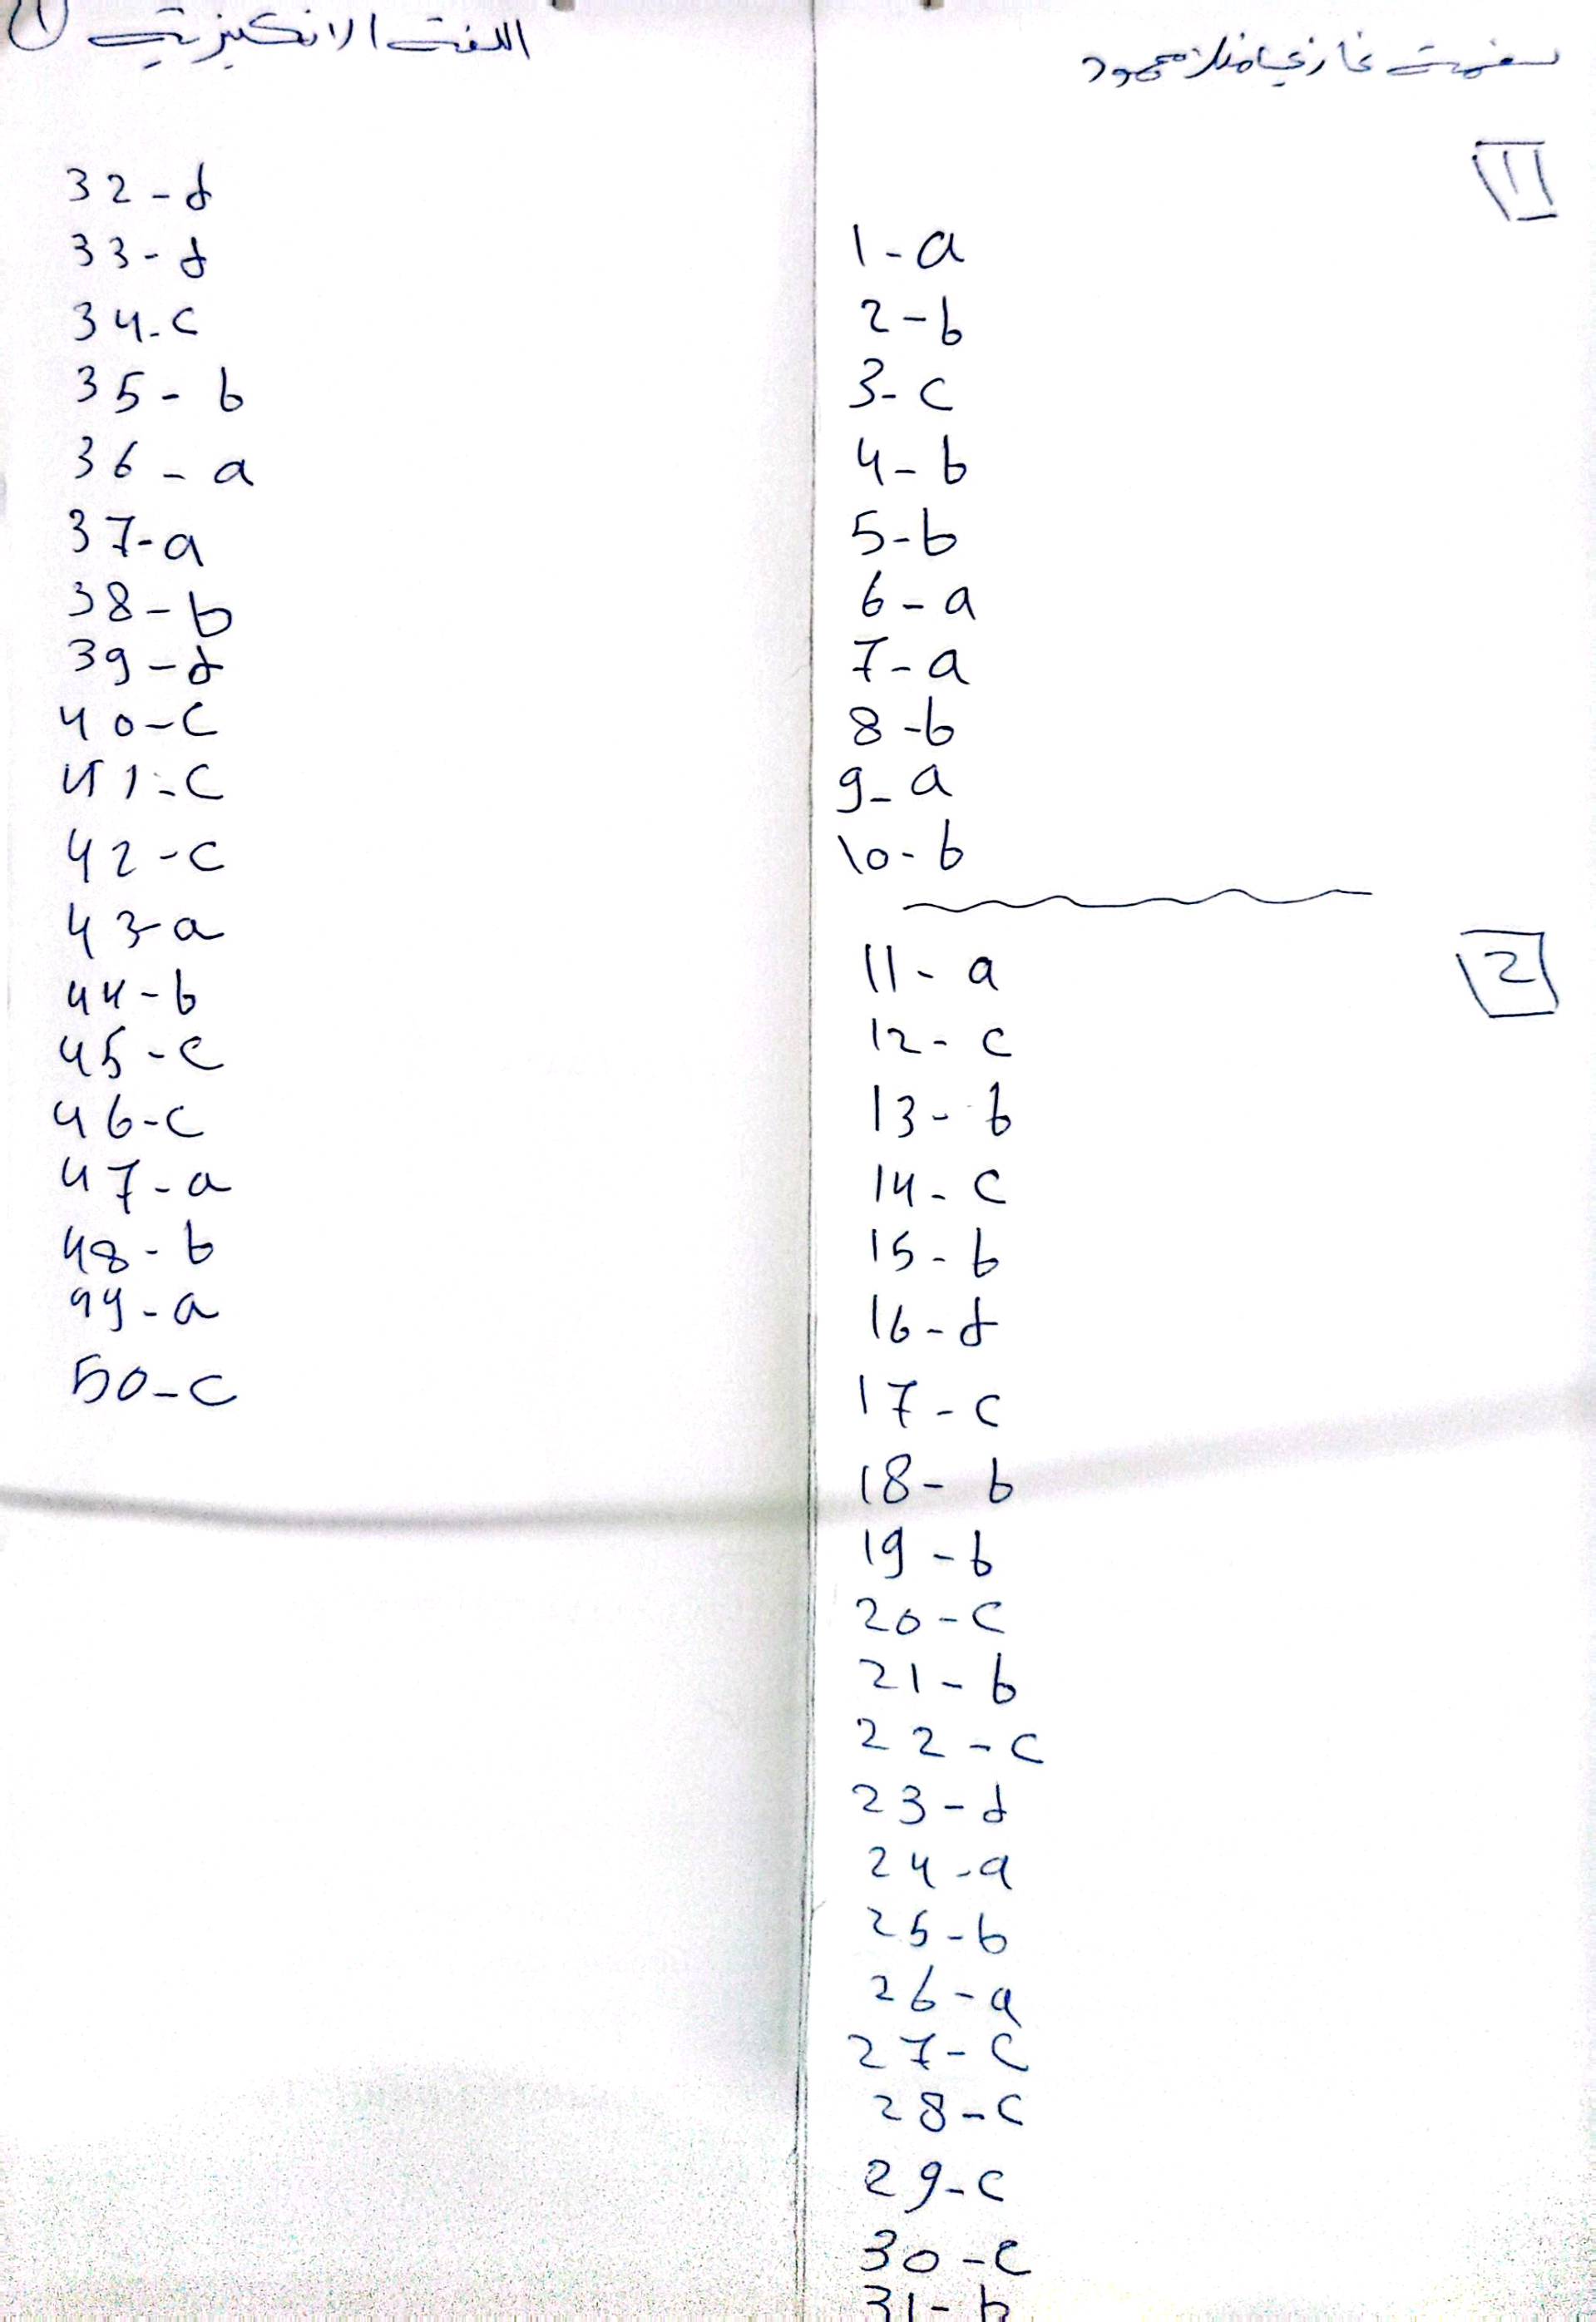 اللغة الانكليزية
١
غازي محمود
1
1-a
2-b
3-c
4-b
5-b
6-a
7-a
8-b
9-a
10-b
2
11-a
12-c
13-b
14-c
15-b
16-d
17-c
18-b
19-b
20-c
21-b
22-c
23-d
24-a
25-b
26-a
27-c
28-c
29-c
30-c
31-b
32-d
33-d
34-c
35-b
36-a
37-a
38-b
39-d
40-c
41-c
42-c
43-a
44-b
45-c
46-c
47-a
48-b
49-a
50-c